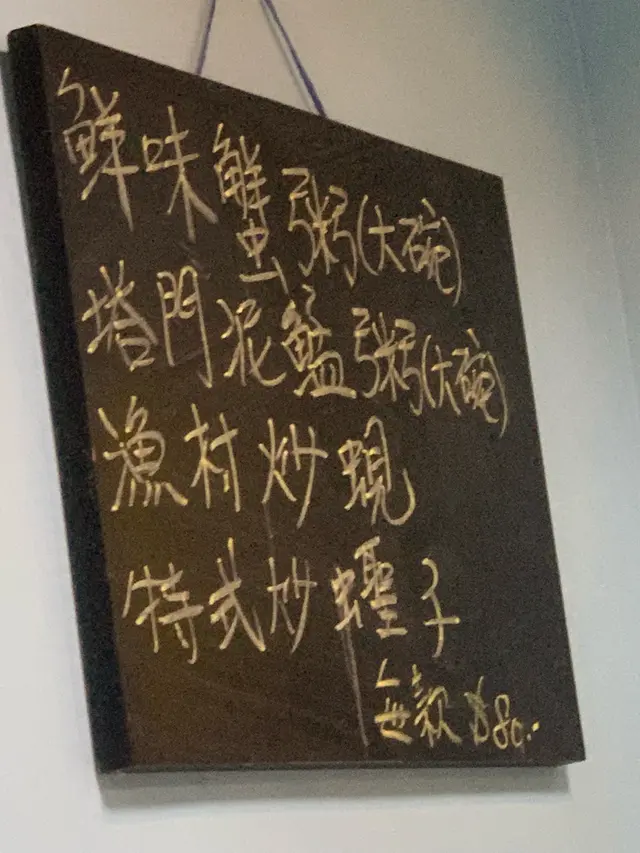 鮮味蟹粥(大碗)
塔門泥鯭粥(大碗)
漁村炒蜆
特式炒蟶子
每款$80.